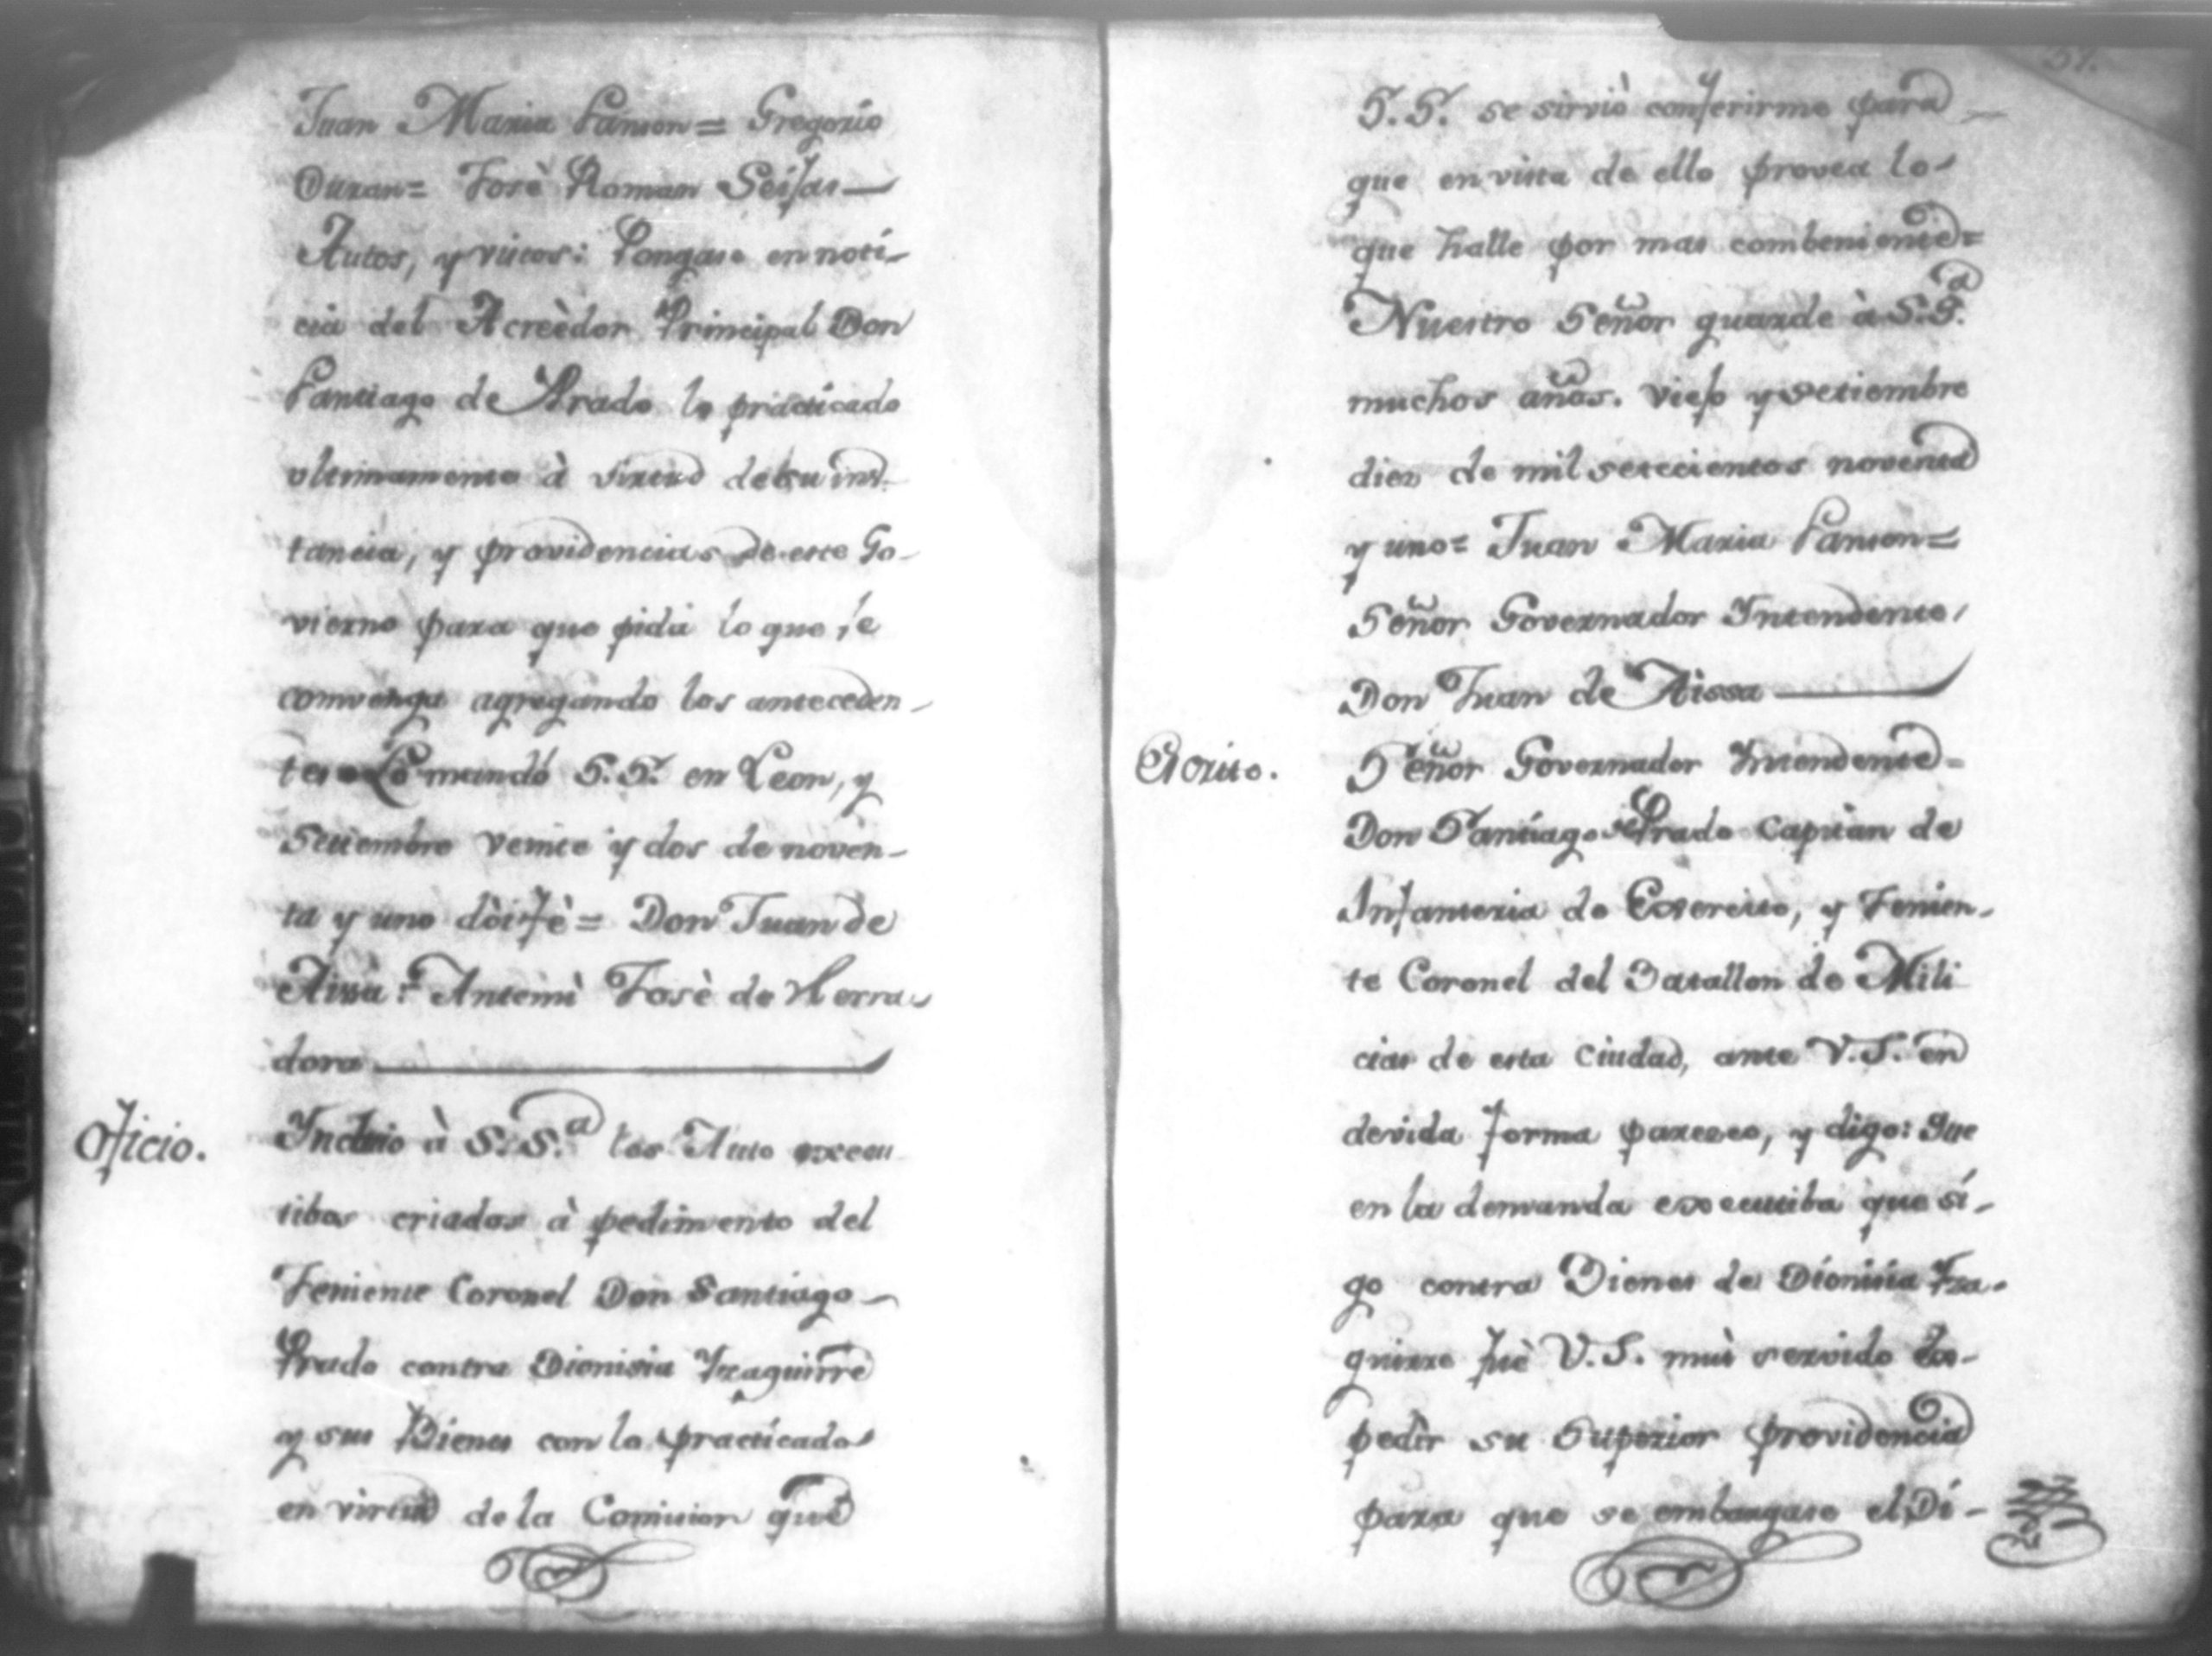 Juan Maria Samson = Gregorio
Duran = Josè Roman Seijas —
Autos, y vistos: Pongase en noti-
cia del Acreèdor Principal Don
Santiago de Prado lo practicado
ultimamente à virtud de su ins-
tancia, y providencias de este Go-
vierno para que pida lo que le
convenga agregando los anteceden-
tes = Lo mandó S.S. en Leon, y
Setiembre veinte y dos de noven-
ta y uno dòi fè = Don Juan de
Aissa = Antemi Josè de Herra-
dora
Oficio.
Incluio à S.S.ª los Auto execu
tibos criados à pedimento del
Teniente Coronel Don Santiago
Prado contra Dionisia Yzaguirre
y sus Bienes con lo practicado
en virtud de la Comision que
37.
S.S. se sirviò conferirme para
que en vista de ello provea lo
que halle por mas combeniente =
Nuestro Señor guarde à S.S.ª
muchos años. Viejo y Setiembre
diez de mil setecientos noventa
y uno = Juan Maria Samson =
Señor Governador Yntendente,
Don Juan de Aissa
Escrito.
Señor Governador Yntendente =
Don Santiago de Prado Capitan de
Infanteria de Exercito, y Tenien-
te Coronel del Batallon de Mili
cias de esta Ciudad, ante V.S. en
devida forma paresco, y digo: Que
en la demanda executiba que si-
go contra Bienes de Dionisia Yza-
guirre fuè V.S. mui servido Ex-
pedir su Superior providencia
para que se embargase el Di-